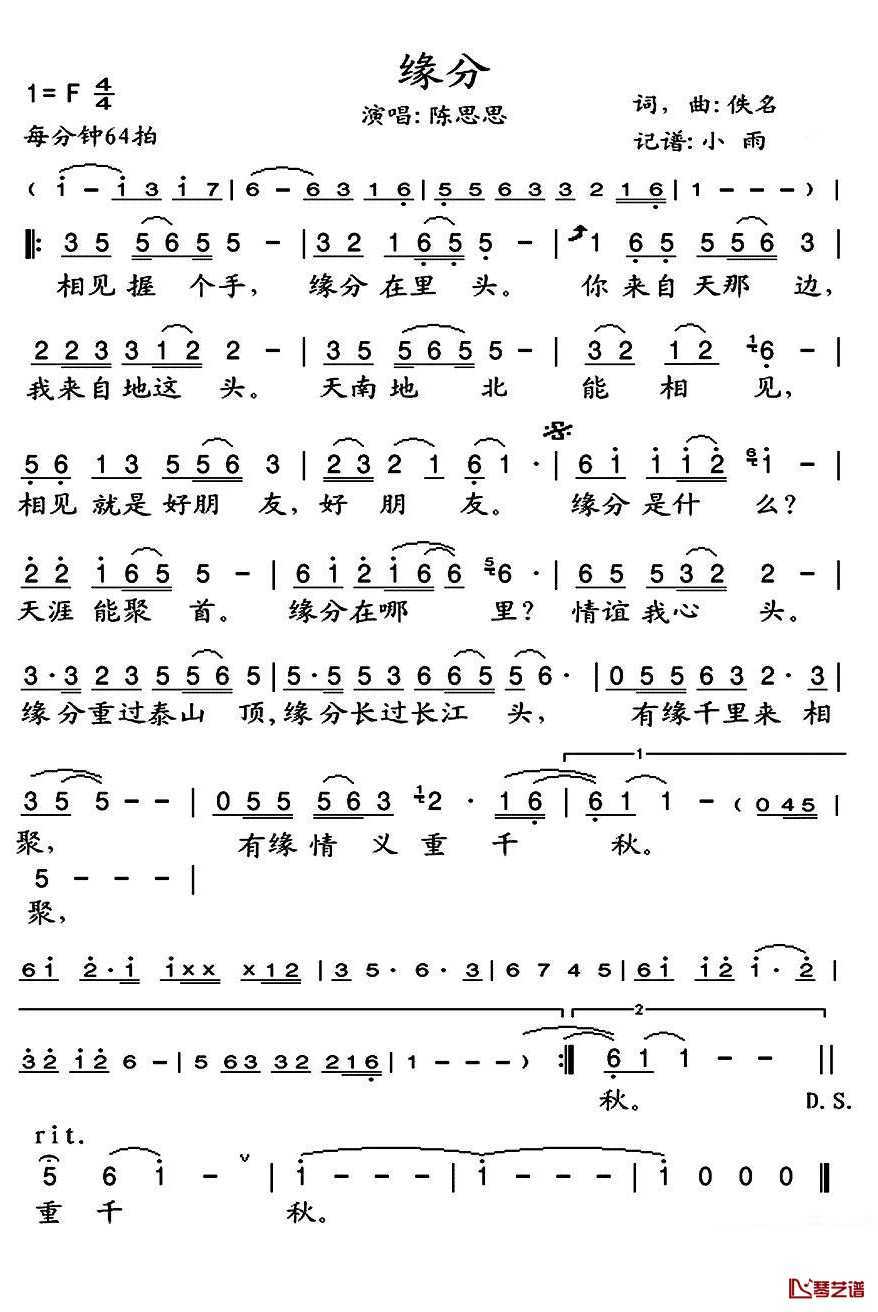 缘分
1=F 4/4
演唱:陈思思
词，曲:佚名
每分钟64拍
记谱:小雨
( i - i 3 i 7 | 6 - 6 3 1 6 | 5 5 6 3 3 2 1 6 | 1 - - - ) |
3 5 5 6 5 5 - | 3 2 1 6 5 5 - | 1 6 5 5 5 6 3 |
相见握个手，缘分在里头。你来自天那边，
2 2 3 3 1 2 2 - | 3 5 5 6 5 5 - | 3 2 1 2 1 6 - |
我来自地这头。天南地北能相见，
5 6 1 3 5 5 6 3 | 2 3 2 1 6 1 · | 6 i i i 2 6 i - |
相见就是好朋友，好朋友。缘分是什么？
2 2 i 6 5 5 - | 6 i 2 i 6 6 5 6 · | 6 5 5 3 2 2 - |
天涯能聚首。缘分在哪里？情谊我心头。
3 · 3 2 3 5 5 6 5 | 5 · 5 5 3 6 6 5 5 6 · | 0 5 5 6 3 2 · 3 |
缘分重过泰山顶，缘分长过长江头，有缘千里来相
1
3 5 5 - - | 0 5 5 5 6 3 1 2 · 1 6 | 6 1 1 - ( 0 4 5 |
聚，有缘情义重千秋。
5 - - - |
聚，
6 i 2 · i i x x x 1 2 | 3 5 · 6 · 3 | 6 7 4 5 | 6 i i 2 i · 2 |
2
3 2 i 2 6 - | 5 6 3 3 2 2 1 6 | 1 - - - ) :‖ 6 1 1 - - ‖
秋。 D.S.
rit.
5 6 i - ∨ | i - - - | i - - - | i 0 0 0 ‖
重千秋。
琴艺谱